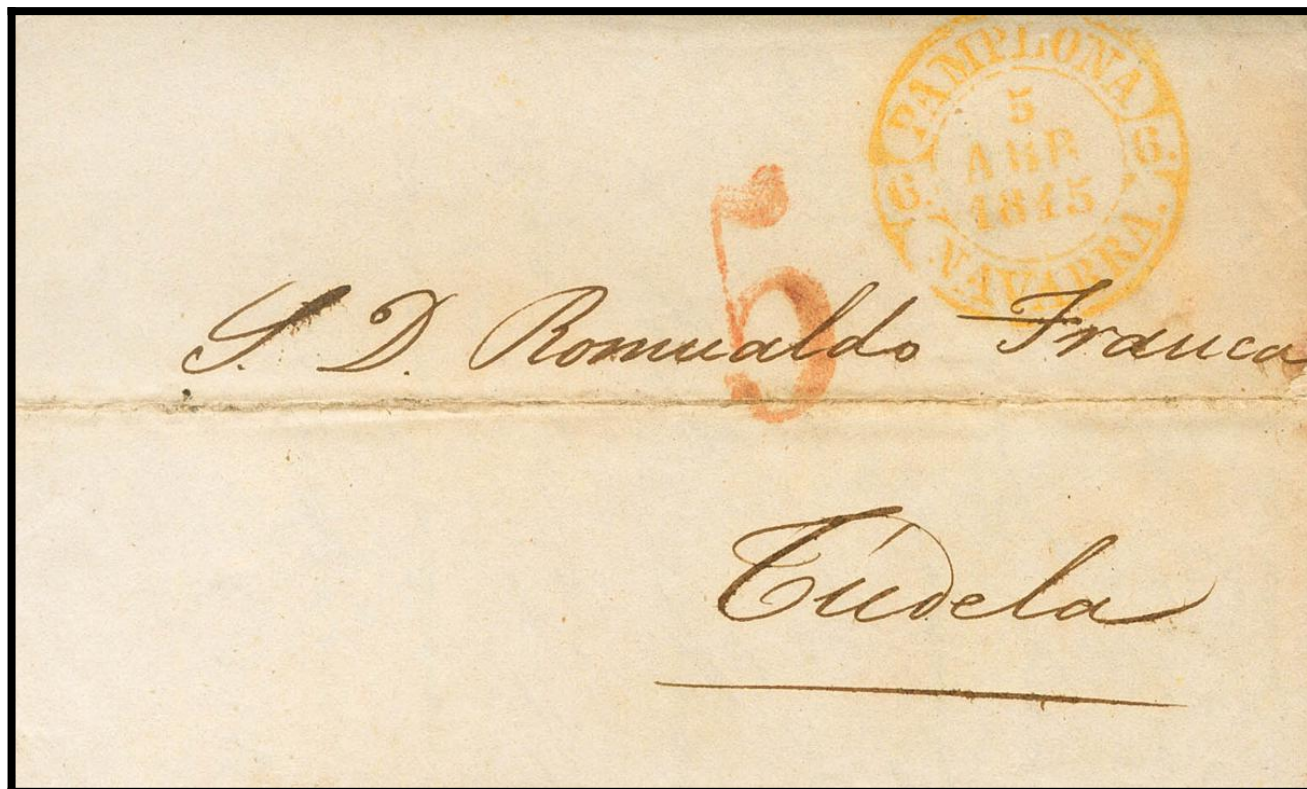 PAMPLONA
6. 6.
5
ABR
1845
NAVARRA.
5
S. D. Romualdo Franca
Túdela